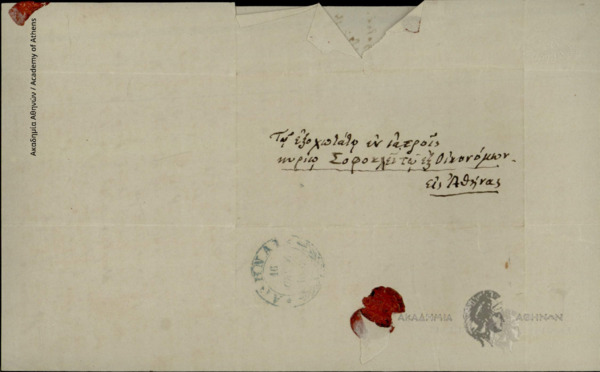 Ακαδημία Αθηνών / Academy of Athens
Τῷ ἐξοχωτάτῳ ἐν ἰατροῖς
κυρίῳ Σοφοκλεῖ τῷ ἐξ Οἰκονόμων
εἰς Ἀθήνας
ΑΘΗΝΑΙ
16
ΑΚΑΔΗΜΙΑ ΑΘΗΝΩΝ